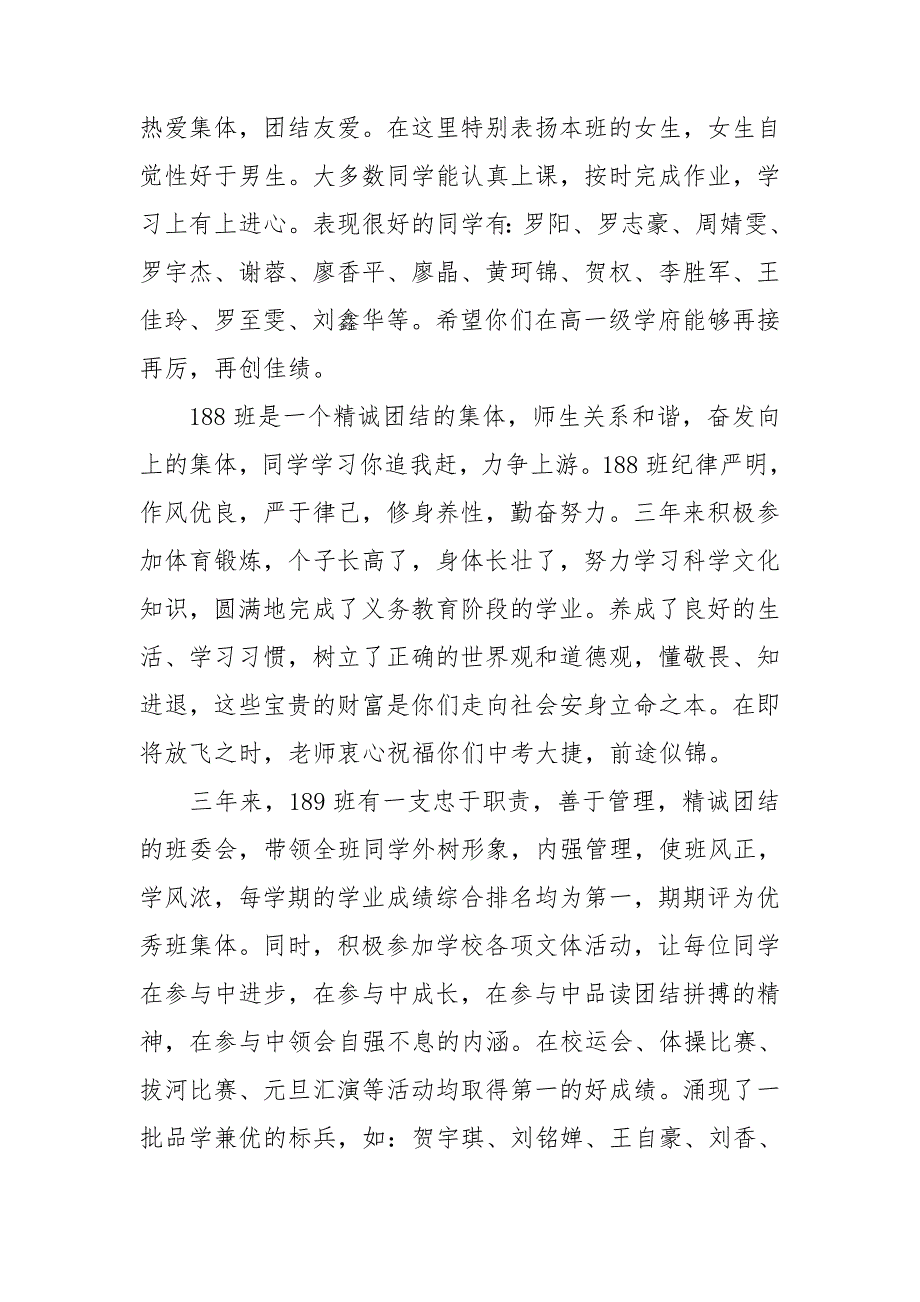 热爱集体，团结友爱。在这里特别表扬本班的女生，女生自
觉性好于男生。大多数同学能认真上课，按时完成作业，学
习上有上进心。表现很好的同学有：罗阳、罗志豪、周婧雯、
罗宇杰、谢蓉、廖香平、廖晶、黄珂锦、贺权、李胜军、王
佳玲、罗至雯、刘鑫华等。希望你们在高一级学府能够再接
再厉，再创佳绩。
188 班是一个精诚团结的集体，师生关系和谐，奋发向
上的集体，同学学习你追我赶，力争上游。188 班纪律严明，
作风优良，严于律己，修身养性，勤奋努力。三年来积极参
加体育锻炼，个子长高了，身体长壮了，努力学习科学文化
知识，圆满地完成了义务教育阶段的学业。养成了良好的生
活、学习习惯，树立了正确的世界观和道德观，懂敬畏、知
进退，这些宝贵的财富是你们走向社会安身立命之本。在即
将放飞之时，老师衷心祝福你们中考大捷，前途似锦。
三年来，189 班有一支忠于职责，善于管理，精诚团结
的班委会，带领全班同学外树形象，内强管理，使班风正，
学风浓，每学期的学业成绩综合排名均为第一，期期评为优
秀班集体。同时，积极参加学校各项文体活动，让每位同学
在参与中进步，在参与中成长，在参与中品读团结拼搏的精
神，在参与中领会自强不息的内涵。在校运会、体操比赛、
拔河比赛、元旦汇演等活动均取得第一的好成绩。涌现了一
批品学兼优的标兵，如：贺宇琪、刘铭婵、王自豪、刘香、